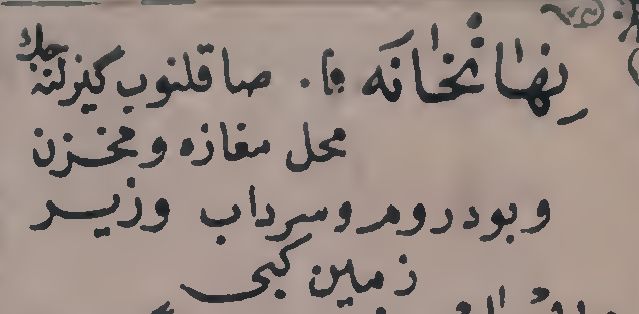 نِهَانْخَانَه فا. صاقلنوب كيزلنه جك
محل مغازه ومخزن
وبودروم وسرداب وزير
زمين كبى